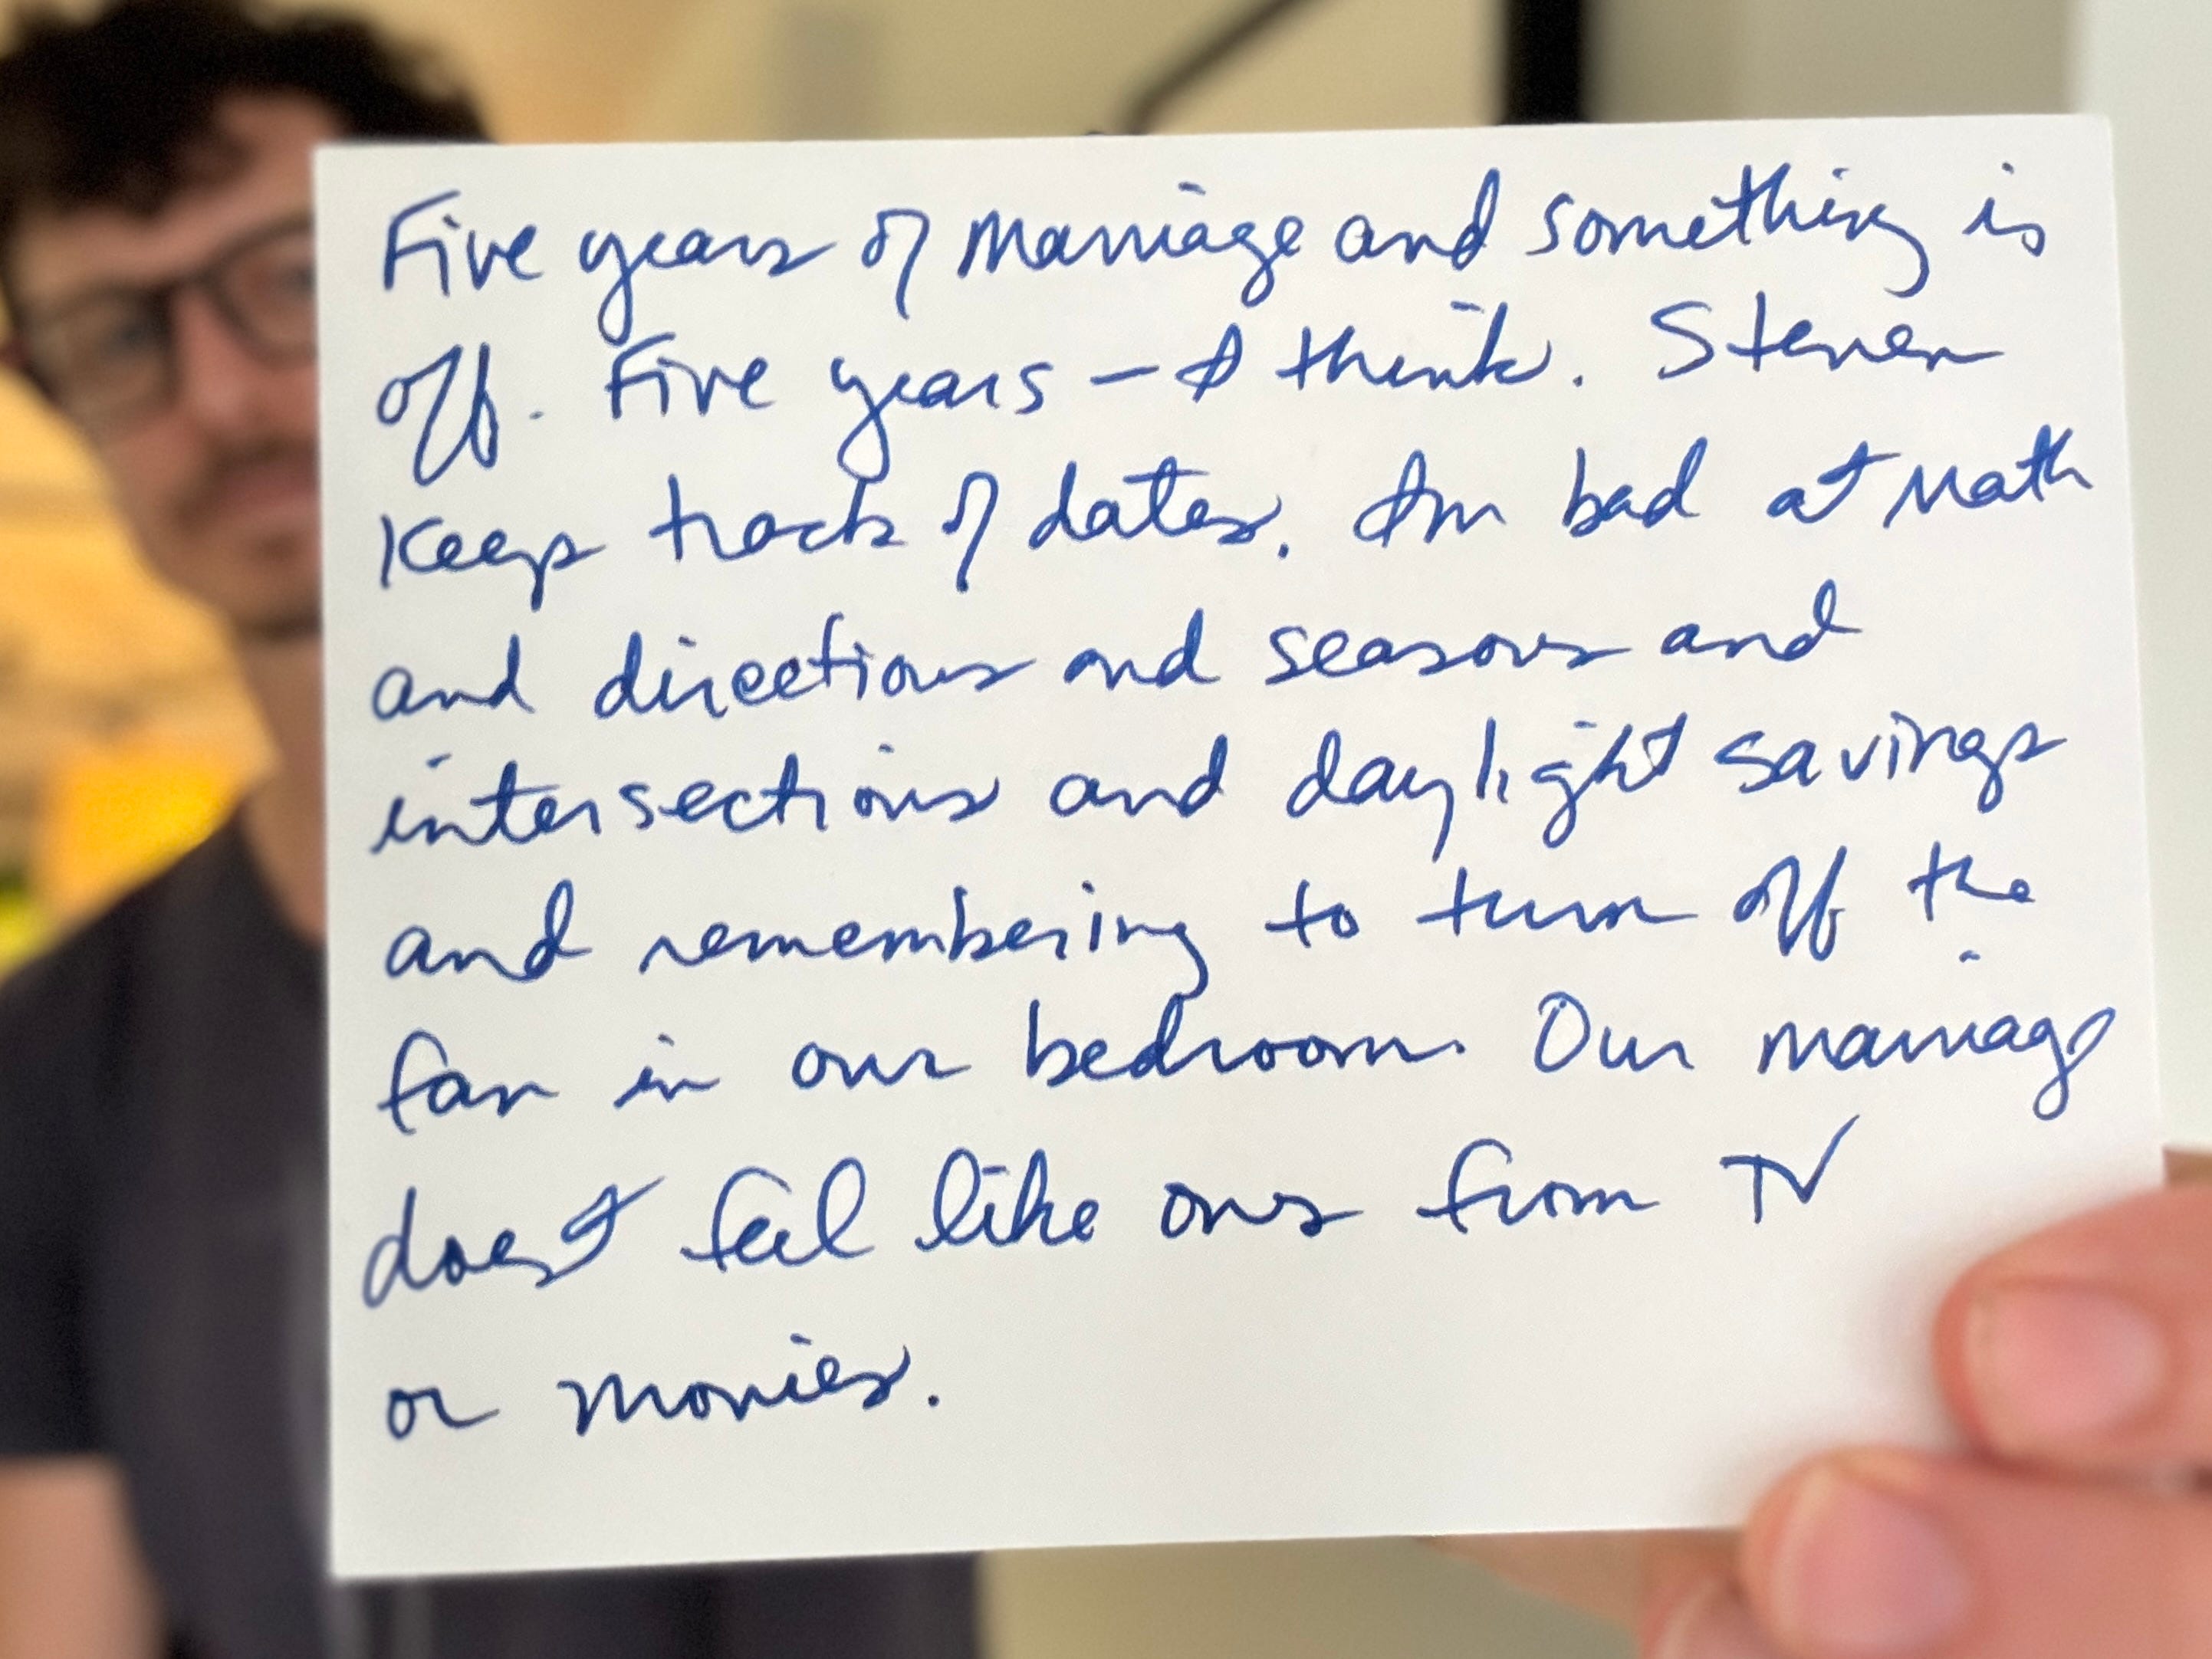 Five years of marriage and something is
off. Five years - I think. Steven
keeps track of dates. I'm bad at math
and directions and seasons and
intersections and daylight savings
and remembering to turn off the
fan in our bedroom. Our marriage
doesn't feel like ones from TV
or movies.